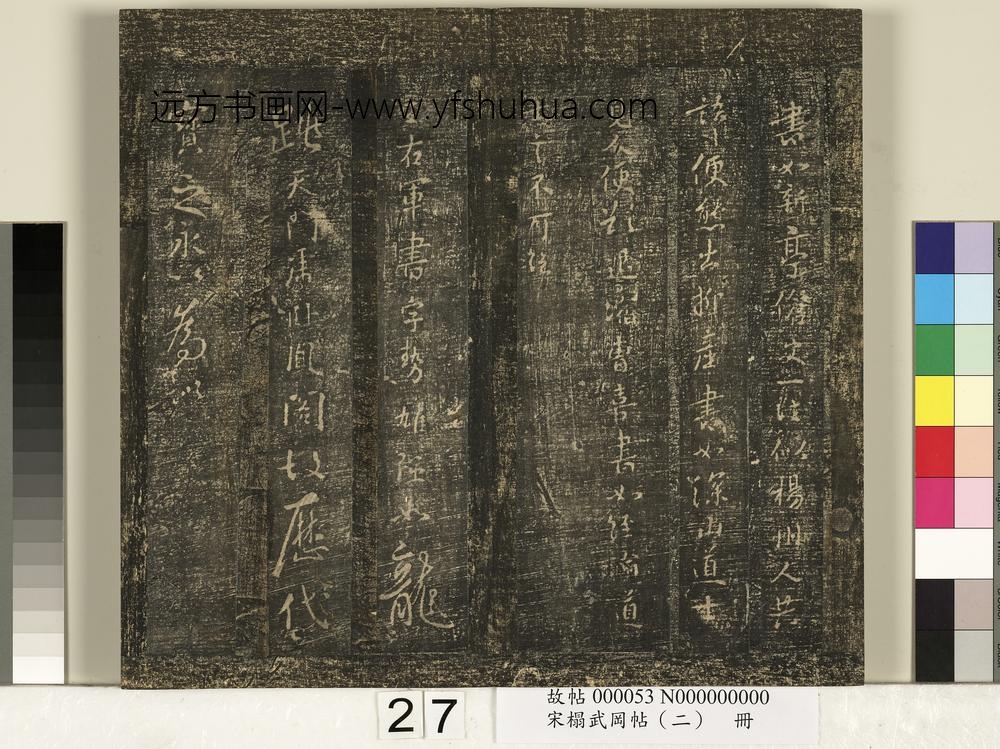 远方书画网-www.yfshuhua.com
書如新亭傖父一往似揚州人共
語便態出抑產書如深山道士
見人便欲退縮曹喜書如經論道
言不可絕
右軍書字勢雄強如龍
跳天門虎臥鳳閣故歷代
寶之永以為訓
27
故帖 000053 N000000000
宋榻武岡帖（二） 冊